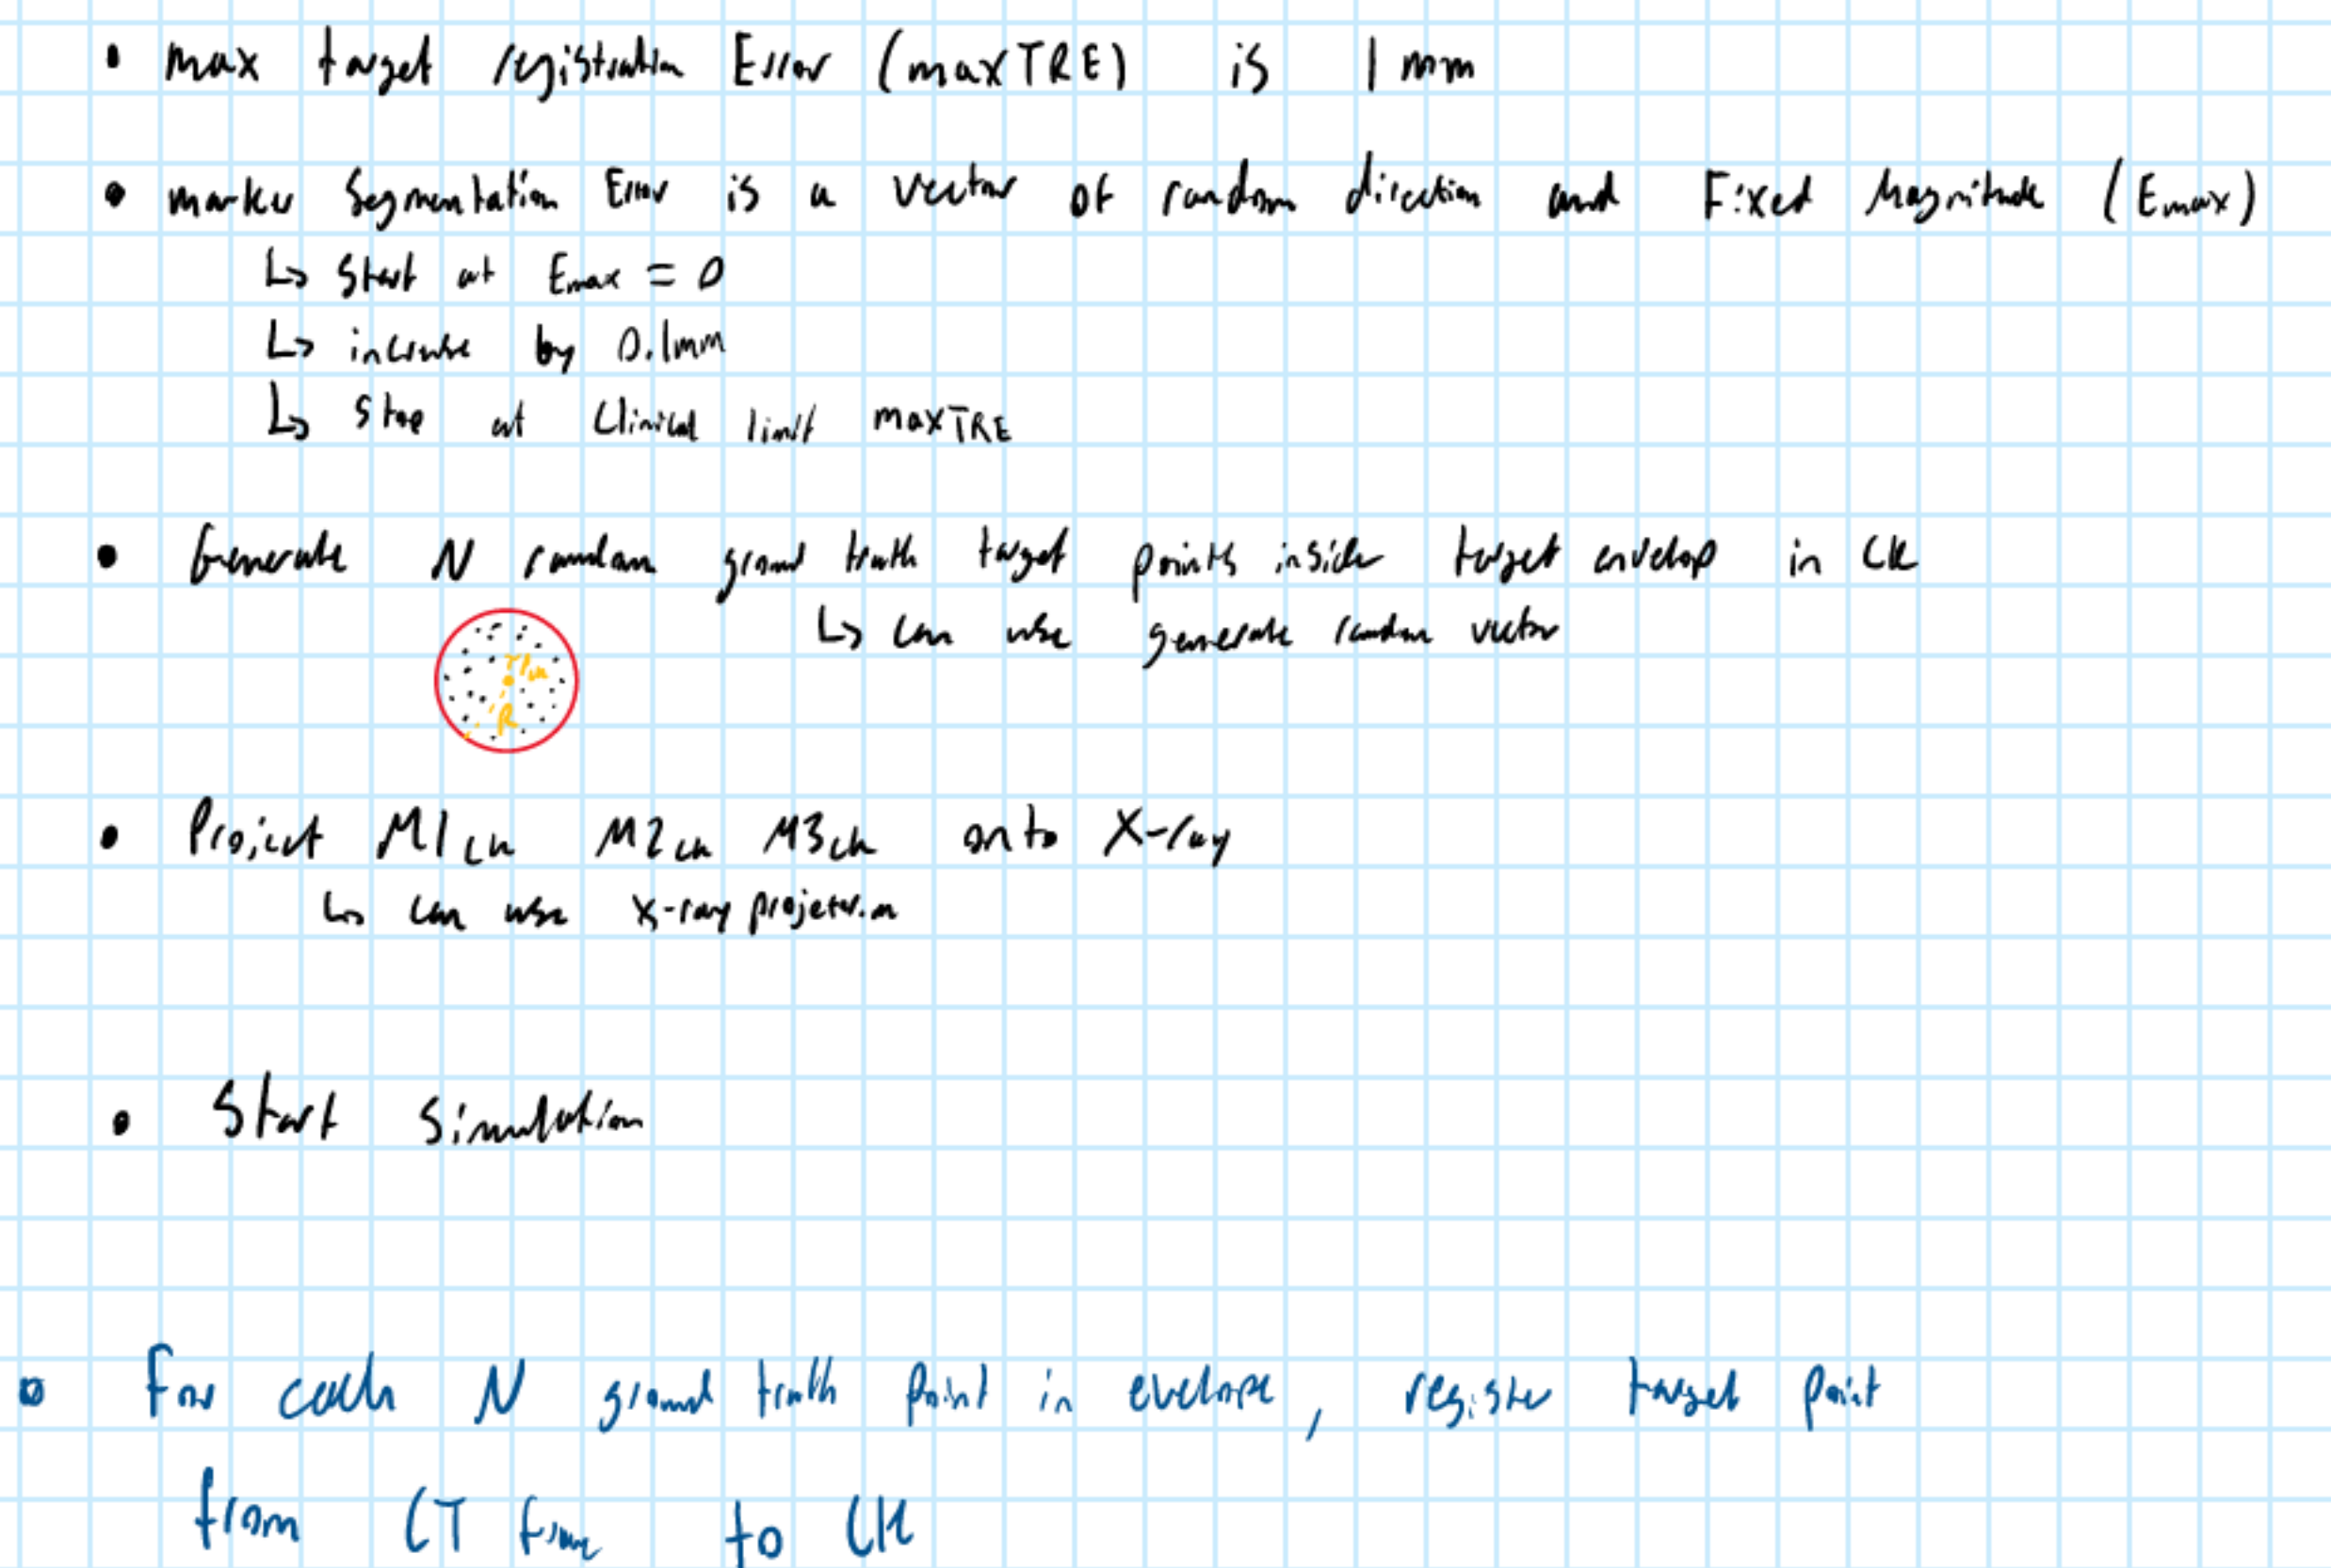 • max target registration Error (maxTRE) is 1 mm
• marker Segmentation Error is a vector of random direction and Fixed Magnitude (Emax)
↳ Start at Emax = 0
↳ increase by 0.1mm
↳ Stop at Clinical limit maxTRE
• Generate N random ground truth target points inside target envelop in CK
↳ can use generate random vector
R
• Project M1ck M2ck M3ck onto X-ray
↳ can use x-ray projetor.m
• Start Simulation
• For each N ground truth point in evelope, register target point
from CT frame to CK